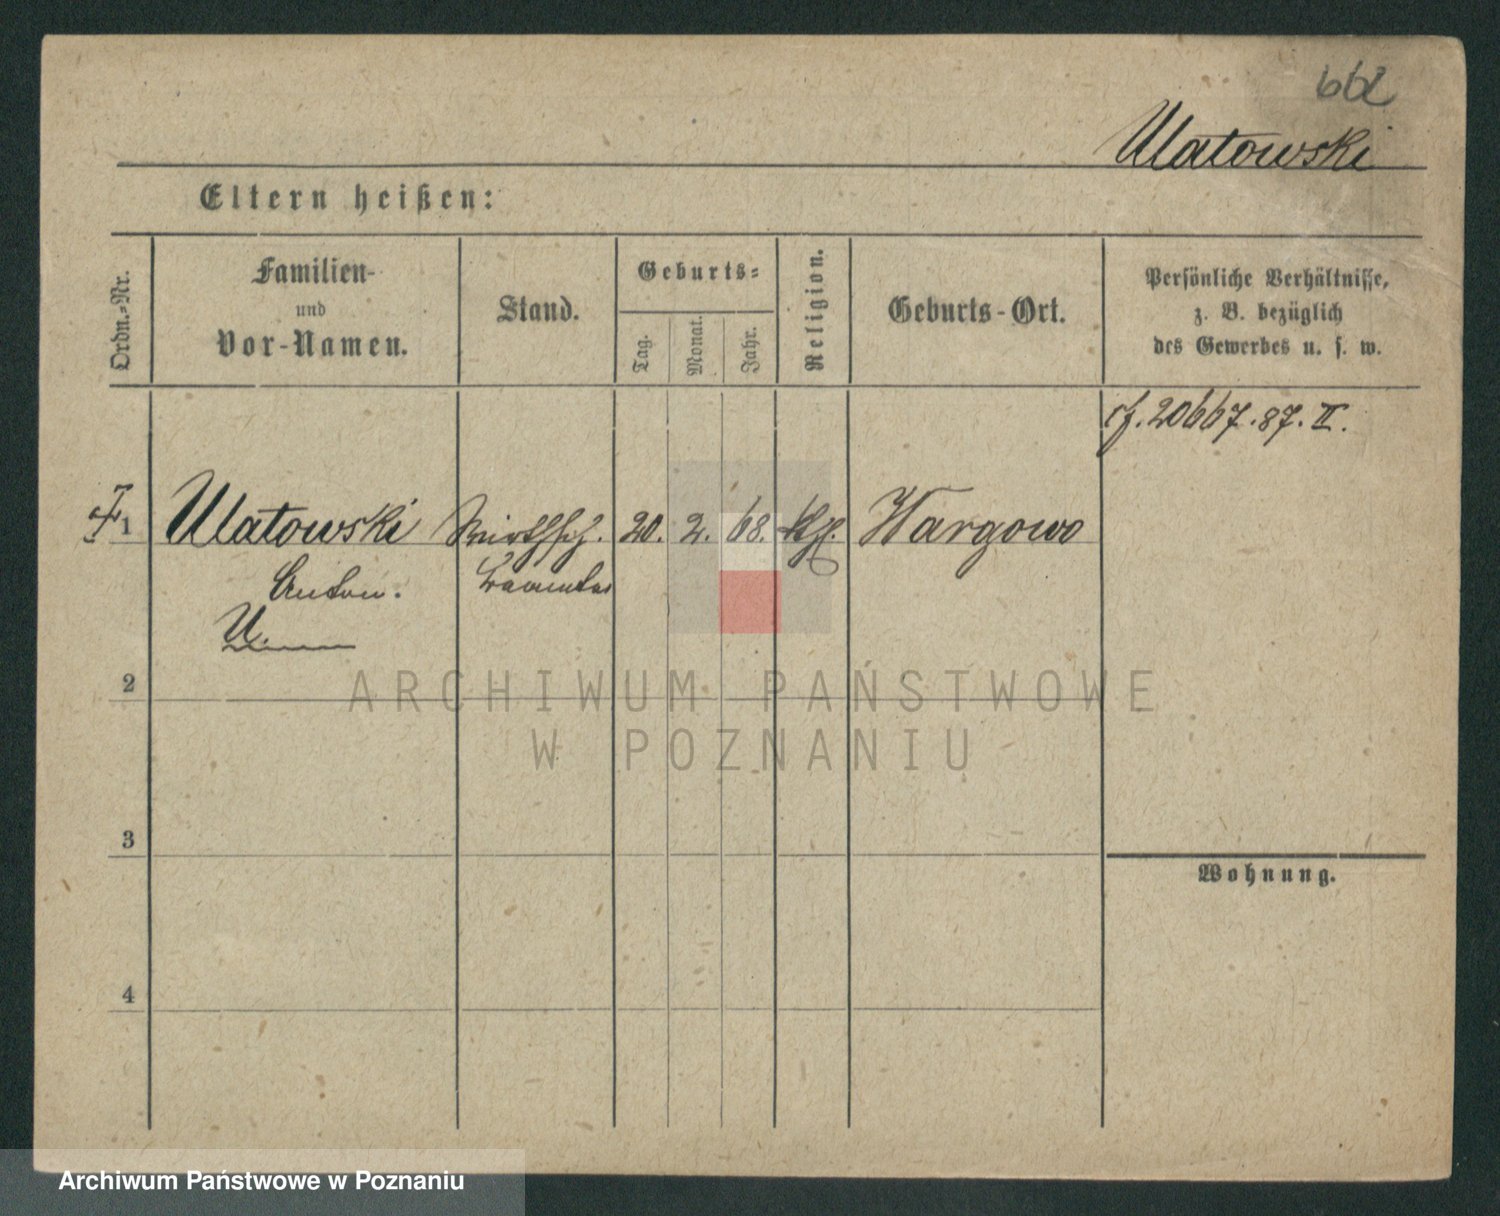 662
Ulatowski
Eltern heißen:
Ordn.-Nr.
Familien-
und
Vor-Namen.
Stand.
Geburts-
Tag.
Monat.
Jahr.
Religion.
Geburts-Ort.
Persönliche Verhältnisse,
z. B. bezüglich
des Gewerbes u. s. w.
cf. 20667.87.II.
1 Ulatowski Wirthsch. 20. 2. 68. kth. Wargowo
Anton. Beamter
U.
2
ARCHIWUM PAŃSTWOWE
W POZNANIU
3
Wohnung.
4
Archiwum Państwowe w Poznaniu